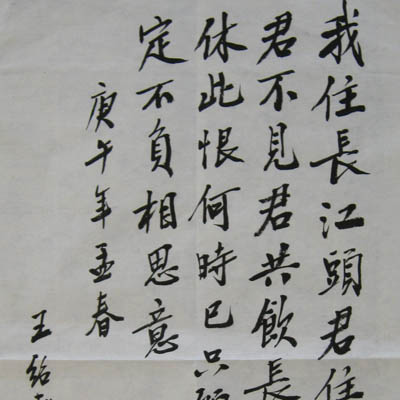 我住長江頭君住
君不見君共飲長
休此恨何時已只
定不負相思意
庚午年孟春
王紹